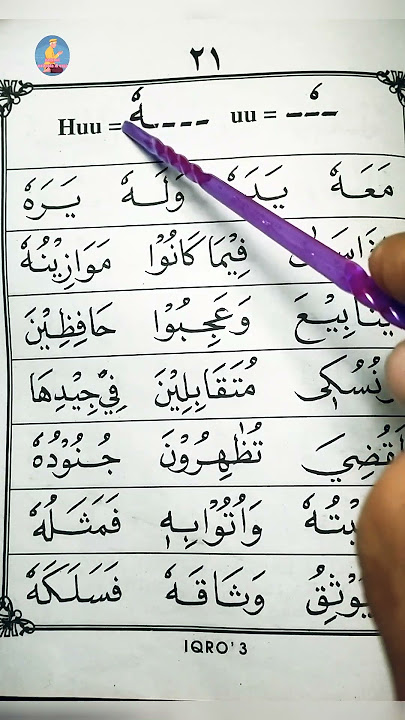 ٢١
Huu = ـهٗ uu = ـٗـ
مَعَهٗ يَدَهٗ وَلَهٗ يَرَهٗ
فِيْمَا كَانُوْا مَوَازِيْنُهٗ
يَنَابِيْعَ وَعَجِبُوْا حَافِظِيْنَ
مُتَقَابِلِيْنَ فِيْ جِيْدِهَا
تُظْهِرُوْنَ جُنُوْدُهٗ
وَاُتُوْابِهٖ فَمَثَلُهٗ
وَثَاقَهٗ فَسَلَكَهٗ
IQRO' 3